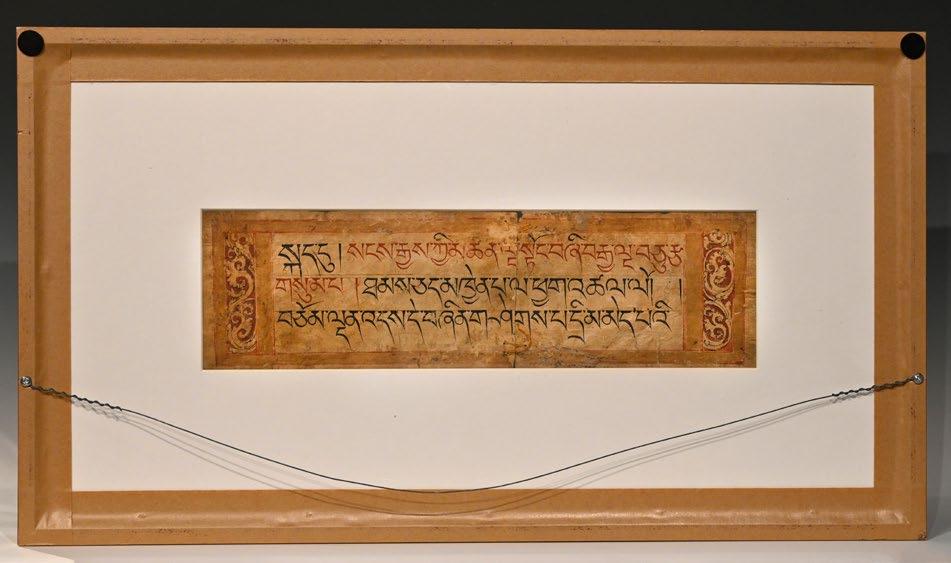 སྐད་དུ། སངས་རྒྱས་ཀྱི་མཚན་ལྔ་སྟོང་བཞི་བརྒྱ་ལྔ་བཅུ་རྩ
གསུམ་པ། །ཐམས་ཅད་མཁྱེན་པ་ལ་ཕྱག་འཚལ་ལོ། །
བཅོམ་ལྡན་འདས་དེ་བཞིན་གཤེགས་པ་དྲི་མ་མེད་པའི